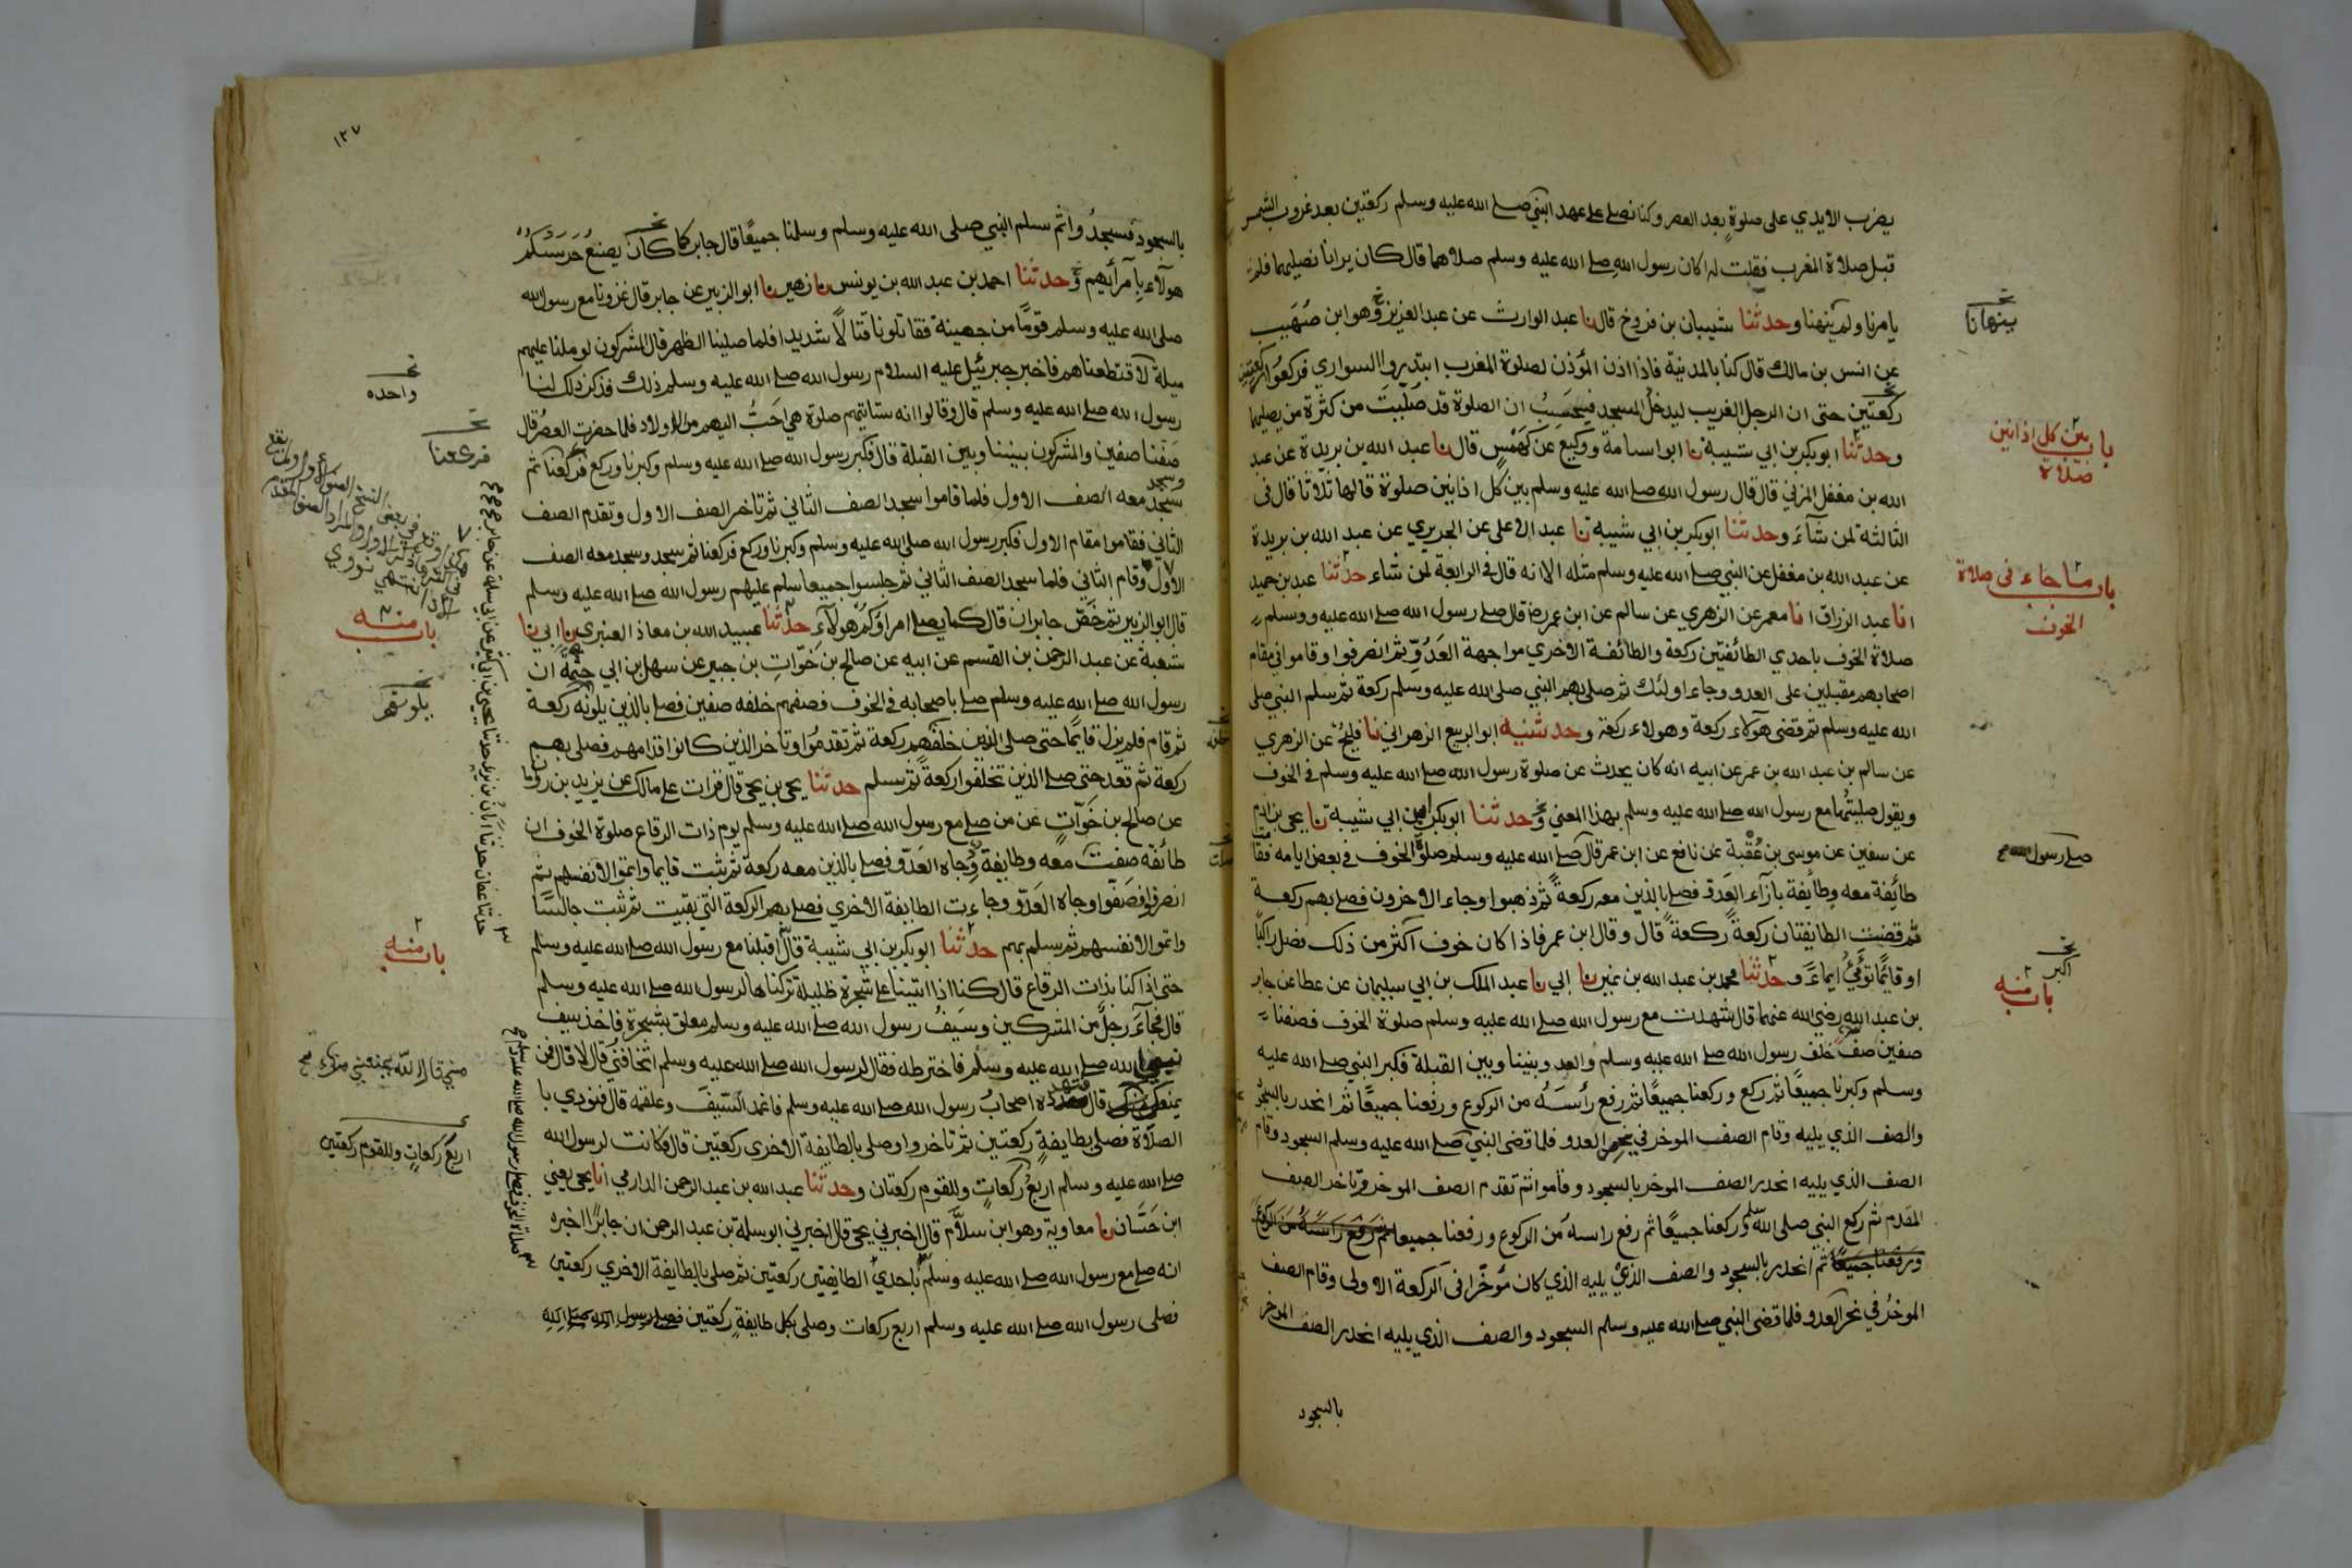 يضرب الايدي على صلوة بعد العصر وكنا نصلي على عهد النبي صلى الله عليه وسلم ركعتين بعد غروب الشمس
قبل صلاة المغرب فقلت له اكان رسول الله صلى الله عليه وسلم صلاهما قال كان يرانا نصليهما فلم
يامرنا ولم ينهنا وحدثنا شيبان بن فروخ قال نا عبد الوارث عن عبد العزيز وهو ابن صهيب
عن انس بن مالك قال كنا بالمدينة فاذا اذن المؤذن لصلوة المغرب ابتدروا السواري فركعوا ركعتين
ركعتين حتى ان الرجل الغريب ليدخل المسجد فيحسب ان الصلوة قد صليت من كثرة من يصليهما
وحدثنا ابو بكر بن ابي شيبة نا ابو اسامة ووكيع عن كهمس قال نا عبد الله بن بريدة عن عبد
الله بن مغفل المزني قال قال رسول الله صلى الله عليه وسلم بين كل اذانين صلوة قالها ثلاثا قال في
الثالثة لمن شآء وحدثنا ابو بكر بن ابي شيبة نا عبد الاعلى عن الجريري عن عبد الله بن بريدة
عن عبد الله بن مغفل عن النبي صلى الله عليه وسلم مثله الا انه قال في الرابعة لمن شاء حدثنا عبد بن حميد
انا عبد الرزاق انا معمر عن الزهري عن سالم عن ابن عمر قال صلى رسول الله صلى الله عليه ووسلم
صلاة الخوف باحدي الطائفتين ركعة والطائفة الاخري مواجهة العدو ثم انصرفوا وقاموا في مقام
اصحابهم مقبلين على العدو وجاء اولئك ثم صلى بهم النبي صلى الله عليه وسلم ركعة ثم سلم النبي صلى
الله عليه وسلم ثم قضى هولاء ركعة وهولاء ركعة وحدثنيه ابو الربيع الزهراني نا فليح عن الزهري
عن سالم بن عبد الله بن عمر عن ابيه انه كان يحدث عن صلوة رسول الله صلى الله عليه وسلم في الخوف
ويقول صليتها مع رسول الله صلى الله عليه وسلم بهذا المعني وحدثنا ابو بكر بن ابي شيبة نا يحيى بن ادم
عن سفين عن موسى بن عقبة عن نافع عن ابن عمر قال صلى الله عليه وسلم صلوة الخوف في بعض ايامه فقا
طائفة معه وطائفة بازآء العدو فصلى بالذين معه ركعة ثم ذهبوا وجاء الاخرون فصلى بهم ركعة
ثم قضت الطايفتان ركعة ركعة قال وقال ابن عمر فاذا كان خوف اكثر من ذلك فصل راكبا
او قايما تومئ ايماء وحدثنا محمد بن عبد الله بن نمير نا ابي نا عبد الملك بن ابي سليمان عن عطا عن جابر
بن عبد الله رضي الله عنهما قال شهدت مع رسول الله صلى الله عليه وسلم صلوة الخوف فصفنا
صفين صف خلف رسول الله صلى الله عليه وسلم والعدو بيننا وبين القبلة فكبر النبي صلى الله عليه
وسلم وكبرنا جميعا ثم ركع وركعنا جميعا ثم رفع رأسه من الركوع ورفعنا جميعا ثم انحدر بالسجود
والصف الذي يليه وقام الصف الموخر في نحر العدو فلما قضى النبي صلى الله عليه وسلم السجود وقام
الصف الذي يليه انحدر الصف الموخر بالسجود وقاموا ثم تقدم الصف الموخر وتاخر الصف
المقدم ثم ركع النبي صلى الله وسلم وركعنا جميعا ثم رفع راسه من الركوع ورفعنا جميعا ثم رفع راسه من الركوع
ورفعنا جميعا ثم انحدر بالسجود والصف الذي يليه الذي كان مؤخرا في الركعة الاولى وقام الصف
الموخر في نحر العدو فلما قضى النبي صلى الله عليه وسلم السجود والصف الذي يليه انحدر الصف الموخر
بالسجود
ينهانا
باب بين كل اذانين
صلاة
باب ما جاء في صلاة
الخوف
صلى رسول الله
اكبر
باب منه
١٢٧
بالسجود فسجدوا ثم سلم النبي صلى الله عليه وسلم وسلمنا جميعا قال جابر كما كان يصنع حرسكم
هولآء بامرائهم وحدثنا احمد بن عبد الله بن يونس نا زهير نا ابو الزبير عن جابر قال غزونا مع رسول الله
صلى الله عليه وسلم قوما من جهينة فقاتلونا قتالا شديدا فلما صلينا الظهر قال المشركون لو ملنا عليهم
ميلة لاقتطعناهم فاخبر جبرئيل عليه السلام رسول الله صلى الله عليه وسلم ذلك فذكر ذلك لنا
رسول الله صلى الله عليه وسلم قال وقالوا انه ستاتيهم صلوة هي احب اليهم من الاولاد فلما حضرت العصر قال
صفنا صفين والمشركون بيننا وبين القبلة قال فكبر رسول الله صلى الله عليه وسلم وكبرنا وركع فركعنا ثم
سجد وسجد معه الصف الاول فلما قاموا سجد الصف الثاني ثم تاخر الصف الاول وتقدم الصف
الثاني فقاموا مقام الاول فكبر رسول الله صلى الله عليه وسلم وكبرنا وركع فركعنا ثم سجد وسجد معه الصف
الاول وقام الثاني فلما سجد الصف الثاني ثم جلسوا جميعا سلم عليهم رسول الله صلى الله عليه وسلم
قال ابو الزبير ثم خص جابر ان قال كما يصلي امراؤكم هولآء حدثنا عبيد الله بن معاذ العنبري نا ابي نا
شعبة عن عبد الرحمن بن القسم عن ابيه عن صالح بن خوات بن جبير عن سهل بن ابي حثمة ان
رسول الله صلى الله عليه وسلم صلى باصحابه في الخوف فصفهم خلفه صفين فصلى بالذين يلونه ركعة
ثم قام فلم يزل قايما حتى صلى الذين خلفهم ركعة ثم تقدموا وتاخر الذين كانوا قدامهم فصلى بهم
ركعة ثم قعد حتى صلى الذين تخلفوا ركعة ثم سلم حدثنا يحيى بن يحيى قال قرات على مالك عن يزيد بن رومان
عن صالح بن خوات عن من صلى مع رسول الله صلى الله عليه وسلم يوم ذات الرقاع صلوة الخوف ان
طائفة صفت معه وطايفة وجاه العدو فصلى بالذين معه ركعة ثم ثبت قايما واتموا لانفسهم ثم
انصرفوا فصفوا وجاه العدو وجاءت الطايفة الاخري فصلى بهم الركعة التي بقيت ثم ثبت جالسا
واتموا لانفسهم ثم سلم بهم حدثنا ابو بكر بن ابي شيبة قال اقبلنا مع رسول الله صلى الله عليه وسلم
حتى اذا كنا بذات الرقاع قال كنا اذا اتينا على شجرة ظليلة تركناها لرسول الله صلى الله عليه وسلم
قال فجآء رجل من المشركين وسيف رسول الله صلى الله عليه وسلم معلق بشجرة فاخذ سيف
الله صلى الله عليه وسلم فاخترطه فقال لرسول الله صلى الله عليه وسلم اتخافني قال لا قال فمن
يمنعك قال فتهدده اصحاب رسول الله صلى الله عليه وسلم فاغمد السيف وعلقه قال فنودي با
الصلاة فصلى بطايفة ركعتين ثم تاخروا وصلى بالطايفة الاخرى ركعتين قال فكانت لرسول الله
صلى الله عليه وسلم اربع ركعات وللقوم ركعتان وحدثنا عبد الله بن عبد الرحمن الدارمي انا يحيى يعني
ابن حسان نا معاوية وهو ابن سلام قال اخبرني يحيى قال اخبرني ابو سلمة بن عبد الرحمن ان جابرا اخبره
انه صلى مع رسول الله صلى الله عليه وسلم باحدي الطايفتين ركعتين ثم صلى بالطايفة الاخري ركعتين
فصلى رسول الله صلى الله عليه وسلم اربع ركعات وصلى بكل طايفة ركعتين فصلى رسول الله صلى الله
واحده
فركعنا
باب منه
يلونهم
باب منه
مني قال الله يمنعني منك
اربع ركعات وللقوم ركعتين
حدثنا عفان حدثنا ابان بن يزيد حدثنا يحيى بن ابي كثير عن ابي سلمة عن جابر